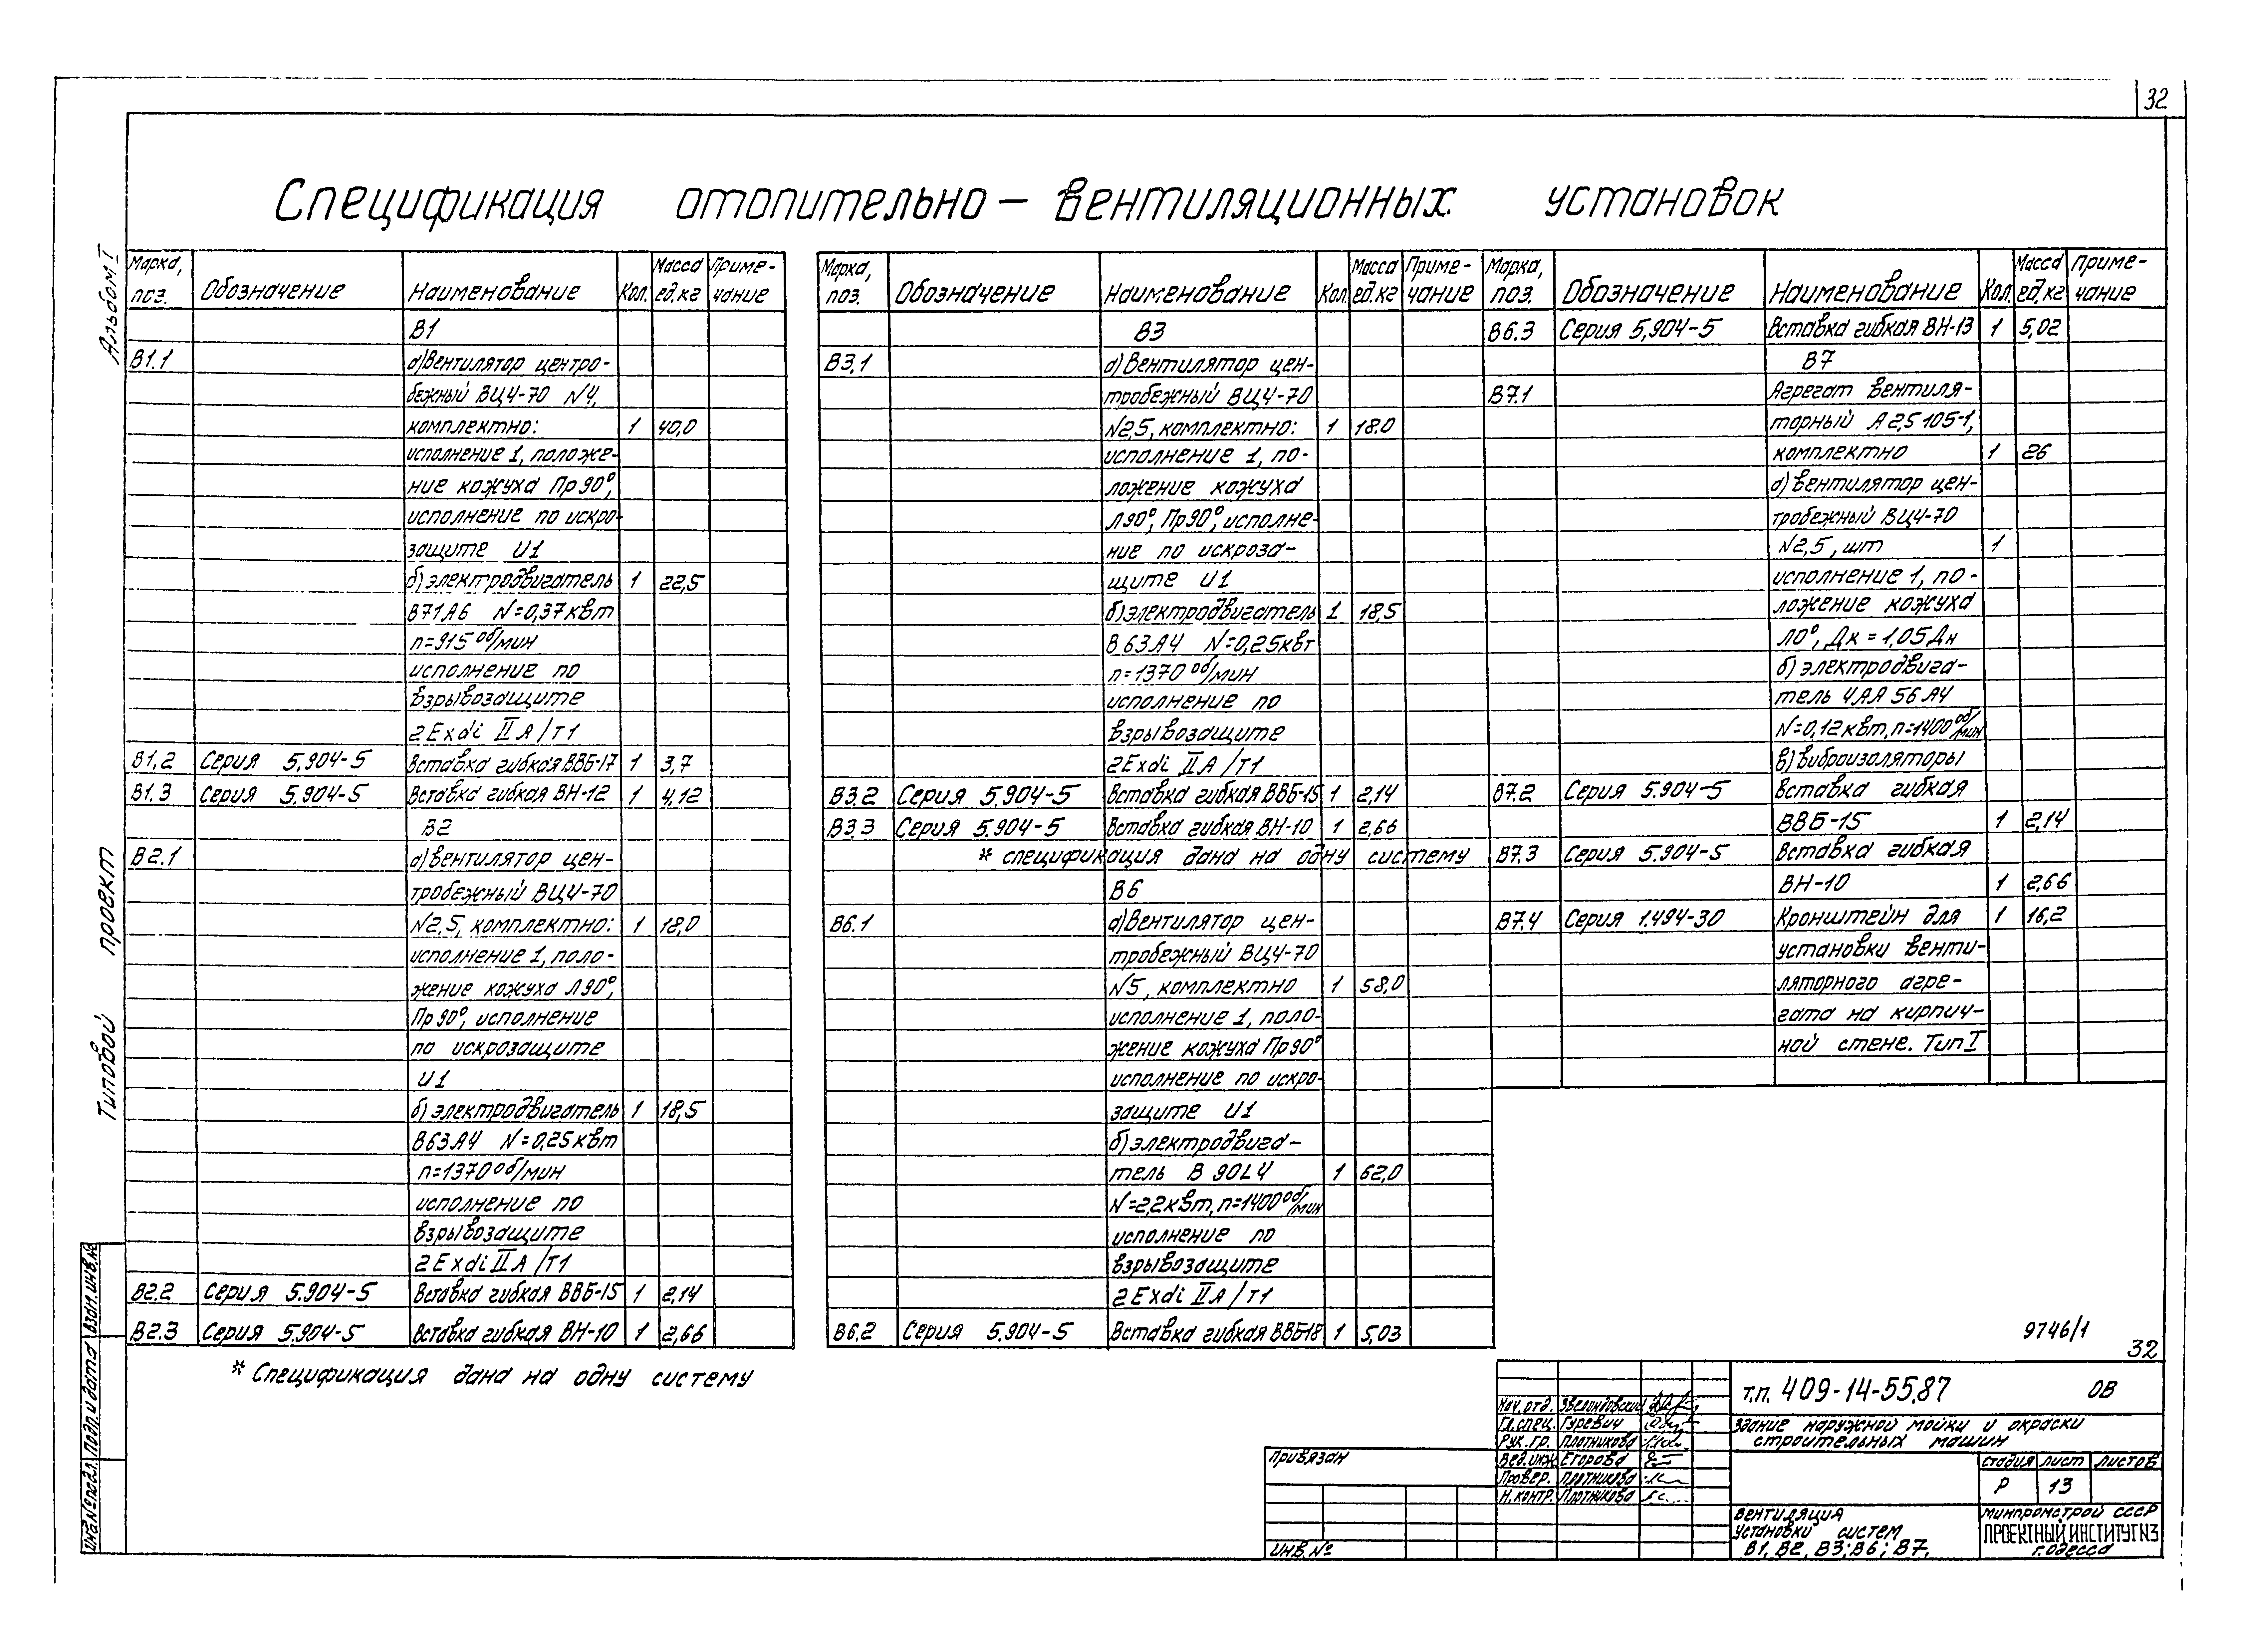 32
Спецификация отопительно-вентиляционных установок
Альбом I
Типовой проект
Марка, поз. Обозначение Наименование Кол. Масса ед.кг Примечание
В1
В1.1 а)Вентилятор центро-
бежный ВЦ4-70 N4,
комплектно: 1 40,0
исполнение 1, положе-
ние кожуха Пр90°,
исполнение по искро-
защите И1
б)электродвигатель 1 22,5
В71А6 N=0,37квт
n=915 об/мин
исполнение по
взрывозащите
2Exdi II А/Т1
В1.2 Серия 5.904-5 Вставка гибкая ВВБ-17 1 3,7
В1.3 Серия 5.904-5 Вставка гибкая ВН-12 1 4,12
В2
В2.1 а)вентилятор цен-
тробежный ВЦ4-70
N2,5, комплектно: 1 18,0
исполнение 1, поло-
жение кожуха Л90°,
Пр90°, исполнение
по искрозащите
И1
б)электродвигатель 1 18,5
В63А4 N=0,25квт
n=1370об/мин
исполнение по
взрывозащите
2Exdi II А/Т1
В2.2 Серия 5.904-5 Вставка гибкая ВВБ-15 1 2,14
В2.3 Серия 5.904-5 Вставка гибкая ВН-10 1 2,66
* Спецификация дана на одну систему
Марка, поз. Обозначение Наименование Кол. Масса ед.кг Примечание
В3
В3.1 а)Вентилятор цен-
тробежный ВЦ4-70
N2,5, комплектно: 1 18.0
исполнение 1, по-
ложение кожуха
Л90°, Пр90°, исполне-
ние по искроза-
щите И1
б)электродвигатель 1 18,5
В63А4 N=0,25квт
n=1370 об/мин
исполнение по
взрывозащите
2Exdi II А/Т1
В3.2 Серия 5.904-5 Вставка гибкая ВВБ-15 1 2,14
В3.3 Серия 5.904-5 Вставка гибкая ВН-10 1 2,66
* спецификация дана на одну систему
В6
В6.1 а)Вентилятор цен-
тробежный ВЦ4-70
N5, комплектно 1 58.0
исполнение 1, поло-
жение кожуха Пр90°
исполнение по искро-
защите И1
б)электродвига-
тель В 90L4 1 62,0
N=2,2квт, n=1400об/мин
исполнение по
взрывозащите
2Exdi II А/Т1
В6.2 Серия 5.904-5 Вставка гибкая ВВБ-18 1 5,03
Марка, поз. Обозначение Наименование Кол. Масса ед,кг Примечание
В6.3 Серия 5,904-5 Вставка гибкая ВН-13 1 5,02
В7
В7.1 Агрегат вентиля-
торный А2,5 105-1,
комплектно 1 26
а)вентилятор цен-
тробежный ВЦ4-70
N2,5, шт 1
исполнение 1, по-
ложение кожуха
Л0°, Дк=1,05Дн
б)электродвига-
тель 4АА56А4
N=0,12квт, n=1400об/мин
в)виброизоляторы
В7.2 Серия 5.904-5 Вставка гибкая
ВВБ-15 1 2,14
В7.3 Серия 5.904-5 Вставка гибкая
ВН-10 1 2,66
В7.4 Серия 1.494-30 Кронштейн для 1 16,2
установки венти-
ляторного агре-
гата на кирпич-
ной стене. Тип I
9746/1
32
т.п. 409-14-55.87 ОВ
Здание наружной мойки и окраски
строительных машин
Нач.отд. Звелиндовский
Гл.спец. Гуревич
Рук.гр. Плотникова
Вед.инж. Егорова
Провер. Плотникова
Н.контр. Плотникова
стадия лист листов
Р 13
Вентиляция
Установки систем
В1, В2, В3; В6; В7.
Минпромстрой СССР
ПРОЕКТНЫЙ ИНСТИТУТ N3
г.Одесса
Привязан
ИНВ.№
Взам.инв.№
Подп.и дата
Инв.№подл.